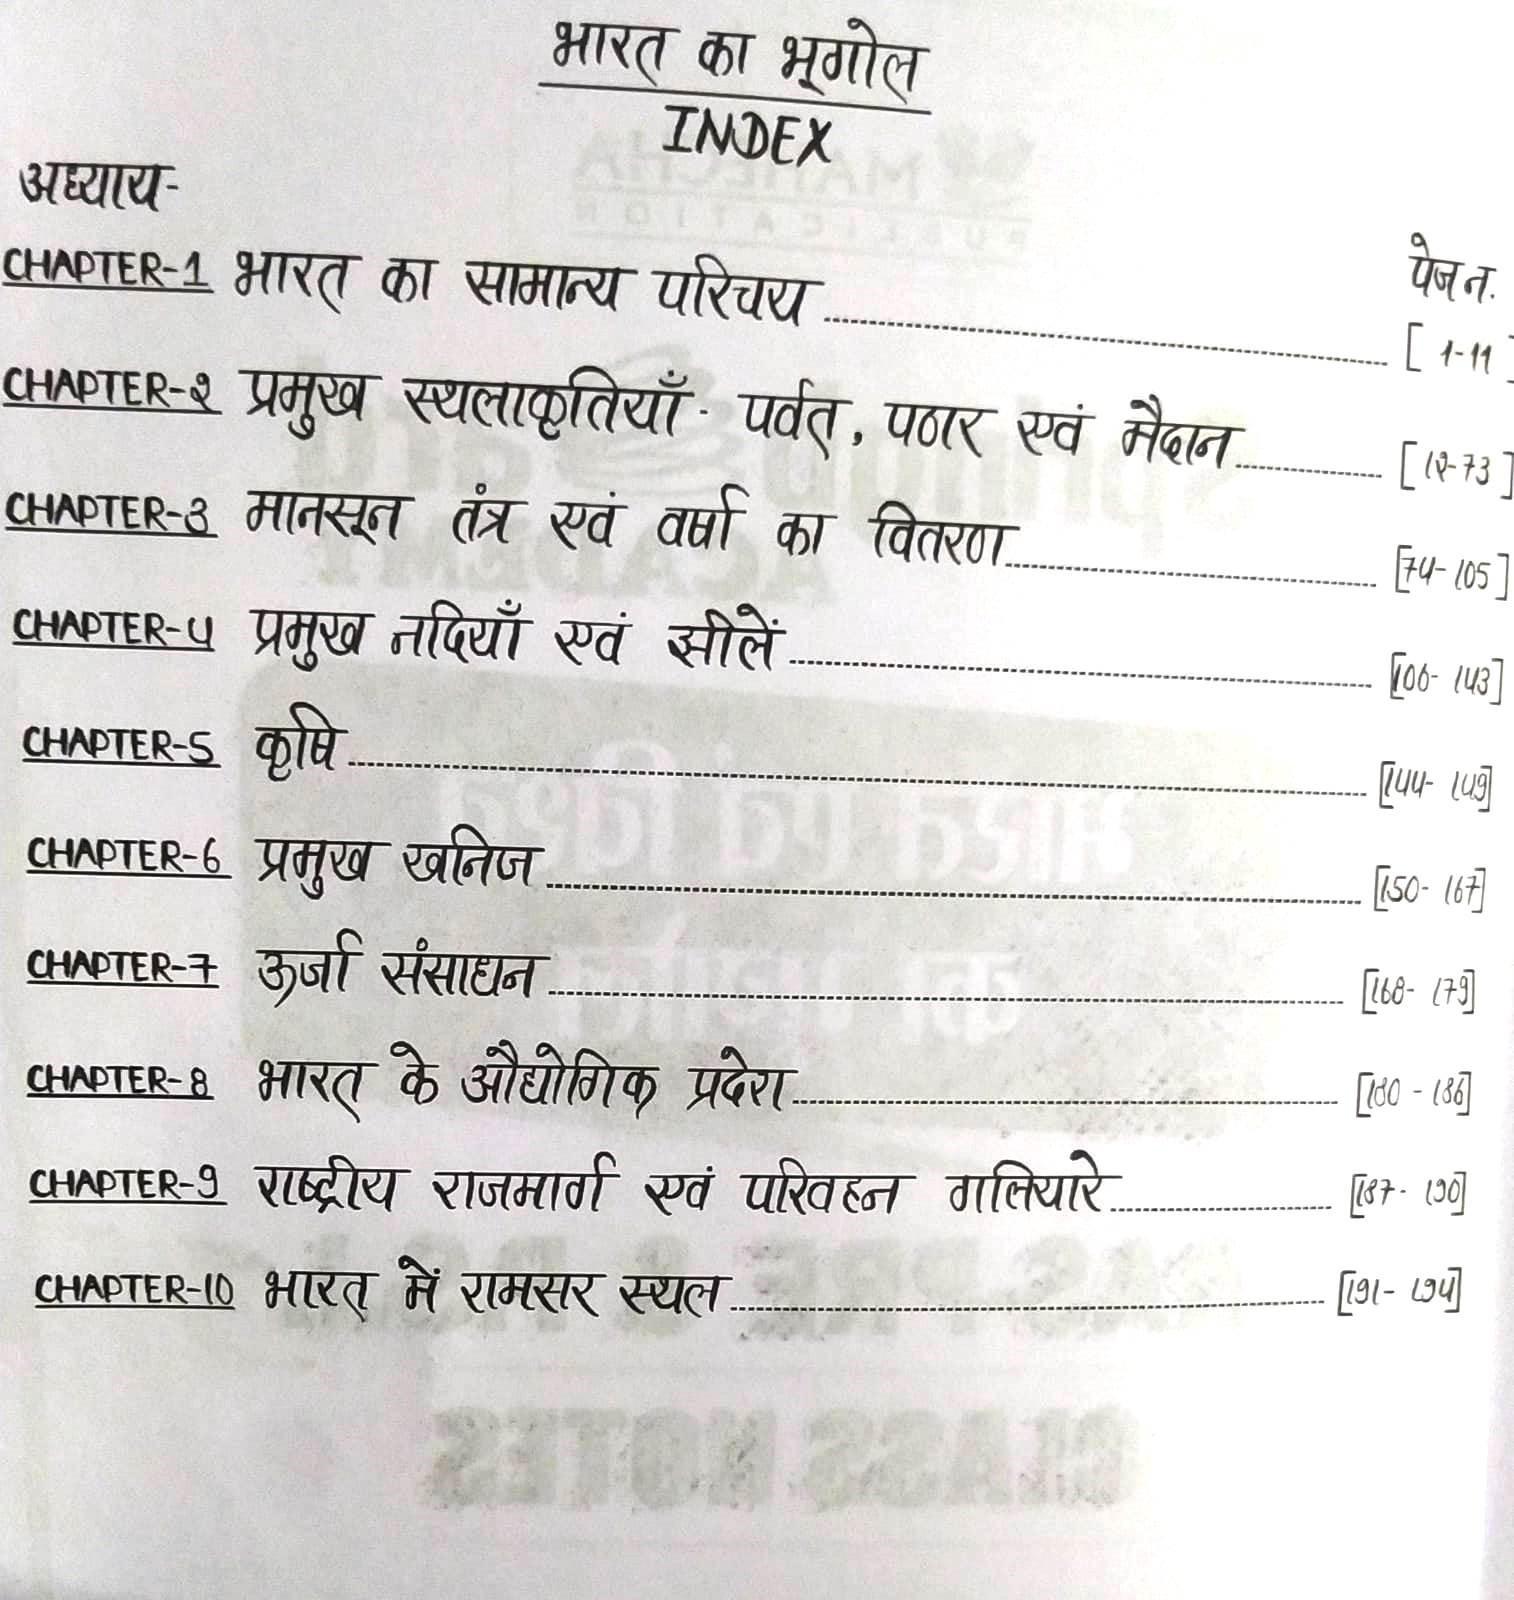 भारत का भूगोल
INDEX
अध्याय-
पेज न.
CHAPTER-1 भारत का सामान्य परिचय [ 1-11 ]
CHAPTER-2 प्रमुख स्थलाकृतियाँ - पर्वत, पठार एवं मैदान [ 12-73 ]
CHAPTER-3 मानसून तंत्र एवं वर्षा का वितरण [74-105]
CHAPTER-4 प्रमुख नदियाँ एवं झीलें [106-143]
CHAPTER-5 कृषि [144-149]
CHAPTER-6 प्रमुख खनिज [150-167]
CHAPTER-7 ऊर्जा संसाधन [168-179]
CHAPTER-8 भारत के औद्योगिक प्रदेश [180-186]
CHAPTER-9 राष्ट्रीय राजमार्ग एवं परिवहन गलियारे [187-190]
CHAPTER-10 भारत में रामसर स्थल [191-194]